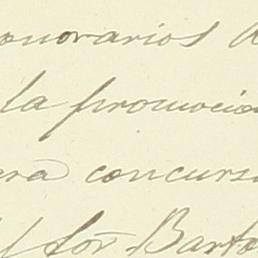 onorarios
la promocio
ra concurs
y for Barto